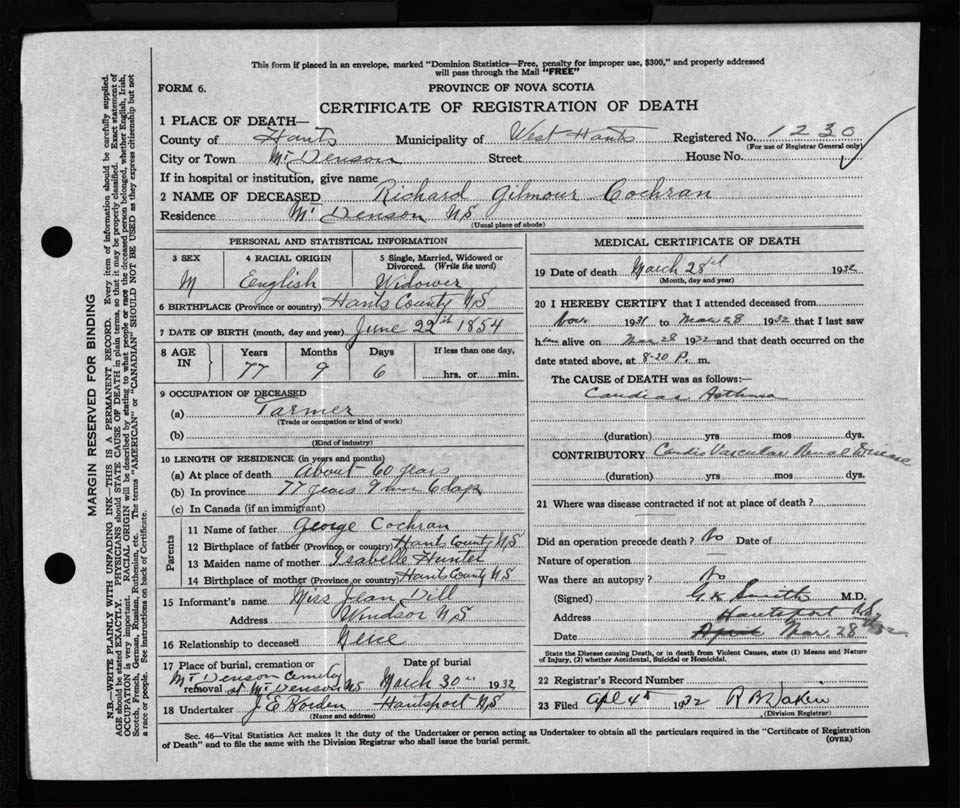 This form if placed in an envelope, marked "Dominion Statistics—Free, penalty for improper use, $300," and properly addressed
will pass through the Mail "FREE"
FORM 6.
PROVINCE OF NOVA SCOTIA
CERTIFICATE OF REGISTRATION OF DEATH
1 PLACE OF DEATH—
County of Hants Municipality of West Hants Registered No. 1230
(For use of Registrar General only)
City or Town Mt Denson Street House No.
If in hospital or institution, give name
2 NAME OF DECEASED Richard Gilmour Cochran
Residence Mt Denson NS
(Usual place of abode)
PERSONAL AND STATISTICAL INFORMATION
3 SEX 4 RACIAL ORIGIN 5 Single, Married, Widowed or Divorced. (Write the word)
M English Widower
6 BIRTHPLACE (Province or country) Hants County NS
7 DATE OF BIRTH (month, day and year) June 22nd 1854
8 AGE IN Years Months Days If less than one day,
77 9 6 hrs. or min.
9 OCCUPATION OF DECEASED
(a) Farmer
(Trade or occupation or kind of work)
(b)
(Kind of industry)
10 LENGTH OF RESIDENCE (in years and months)
(a) At place of death About 60 years
(b) In province 77 years 9 mos 6 days
(c) In Canada (if an immigrant)
Parents
11 Name of father George Cochran
12 Birthplace of father (Province or country) Hants County NS
13 Maiden name of mother Isabelle Hunter
14 Birthplace of mother (Province or country) Hants County NS
15 Informant's name Miss Jean Dill
Address Windsor NS
16 Relationship to deceased Neice
17 Place of burial, cremation or Date of burial
Mt Denson Cemetery
removal at Mt Denson NS March 30th 1932
18 Undertaker J E Borden Hantsport NS
(Name and address)
MEDICAL CERTIFICATE OF DEATH
19 Date of death March 28st 1932
(Month, day and year)
20 I HEREBY CERTIFY that I attended deceased from
Nov. 1931 to Mar 28 1932 that I last saw
him alive on Mar 28 1932 and that death occurred on the
date stated above, at 8-20 P. m.
The CAUSE OF DEATH was as follows:—
Cardiac Asthma
(duration) yrs mos dys.
CONTRIBUTORY Cardio Vascular Renal Disease
(duration) yrs mos dys.
21 Where was disease contracted if not at place of death?
Did an operation precede death? No Date of
Nature of operation
Was there an autopsy? No
(Signed) G K Smith M.D.
Address Hantsport NS
Date April Mar. 28 32
State the Disease causing Death, or in death from Violent Causes, state (1) Means and Nature of Injury, (2) whether Accidental, Suicidal or Homicidal.
22 Registrar's Record Number
23 Filed Apl 4th 1932 R B Dakin
(Division Registrar)
Sec. 46—Vital Statistics Act makes it the duty of the Undertaker or person acting as Undertaker to obtain all the particulars required in the "Certificate of Registration
of Death" and to file the same with the Division Registrar who shall issue the burial permit. (OVER)
MARGIN RESERVED FOR BINDING
N.B.—WRITE PLAINLY WITH UNFADING INK—THIS IS A PERMANENT RECORD. Every item of information should be carefully supplied.
AGE should be stated EXACTLY. PHYSICIANS should STATE CAUSE OF DEATH in plain terms, so that it may be properly classified. Exact statement of
OCCUPATION is very important. RACIAL ORIGIN will be described by stating to what people or race the deceased person belonged, whether English, Irish,
Scotch, French, German, Russian, Ruthenian, etc. The terms "AMERICAN" or "CANADIAN" SHOULD NOT BE USED as they express citizenship but not
a race or people. See instructions on back of Certificate.